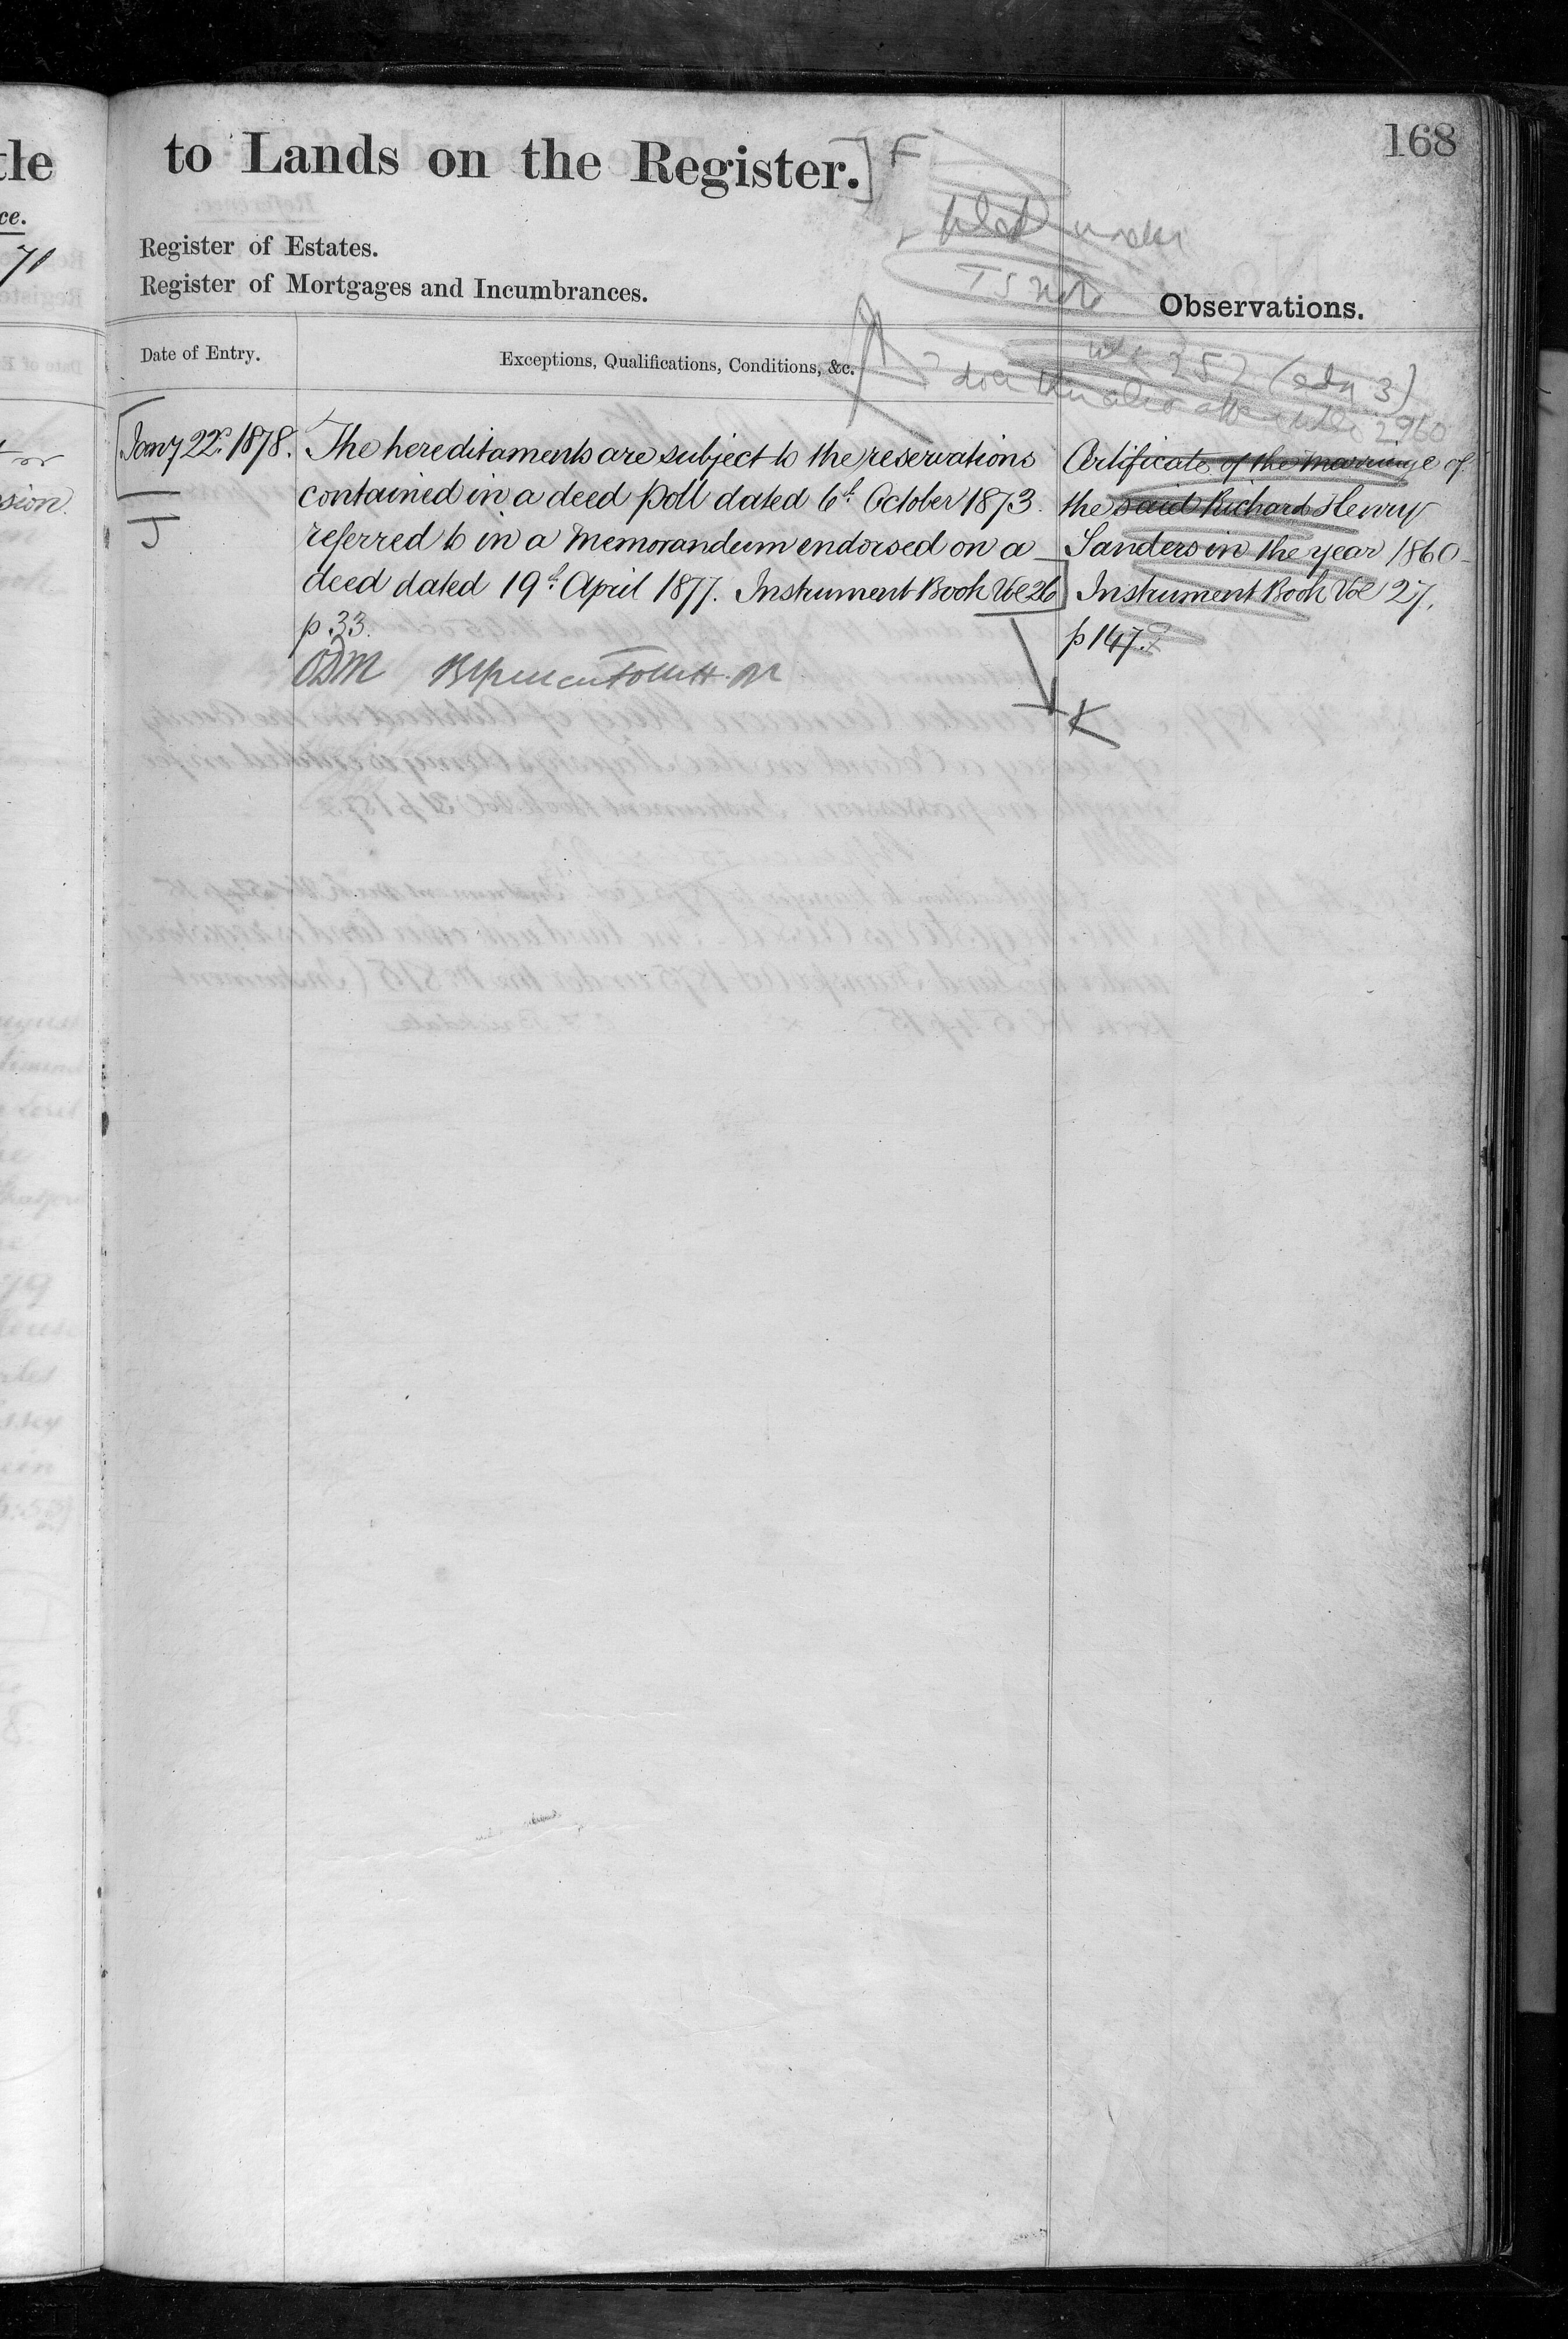 168
to Lands on the Register.] F
Register of Estates.
Register of Mortgages and Incumbrances.
under
Observations.
Date of Entry.
Exceptions, Qualifications, Conditions, &c.
257 (edn 3)
2960
Jany 22. 1878.
The hereditaments are subject to the reservations
contained in a deed poll dated 6th October 1873
referred to in a Memorandum endorsed on a
deed dated 19th April 1877. Instrument Book Vol 26
p. 33.
J
Certificate of the marriage of
the said Richard Henry
Sanders in the year 1860
Instrument Book Vol 27.
p 147.
K
tle
ce.
71
sion.